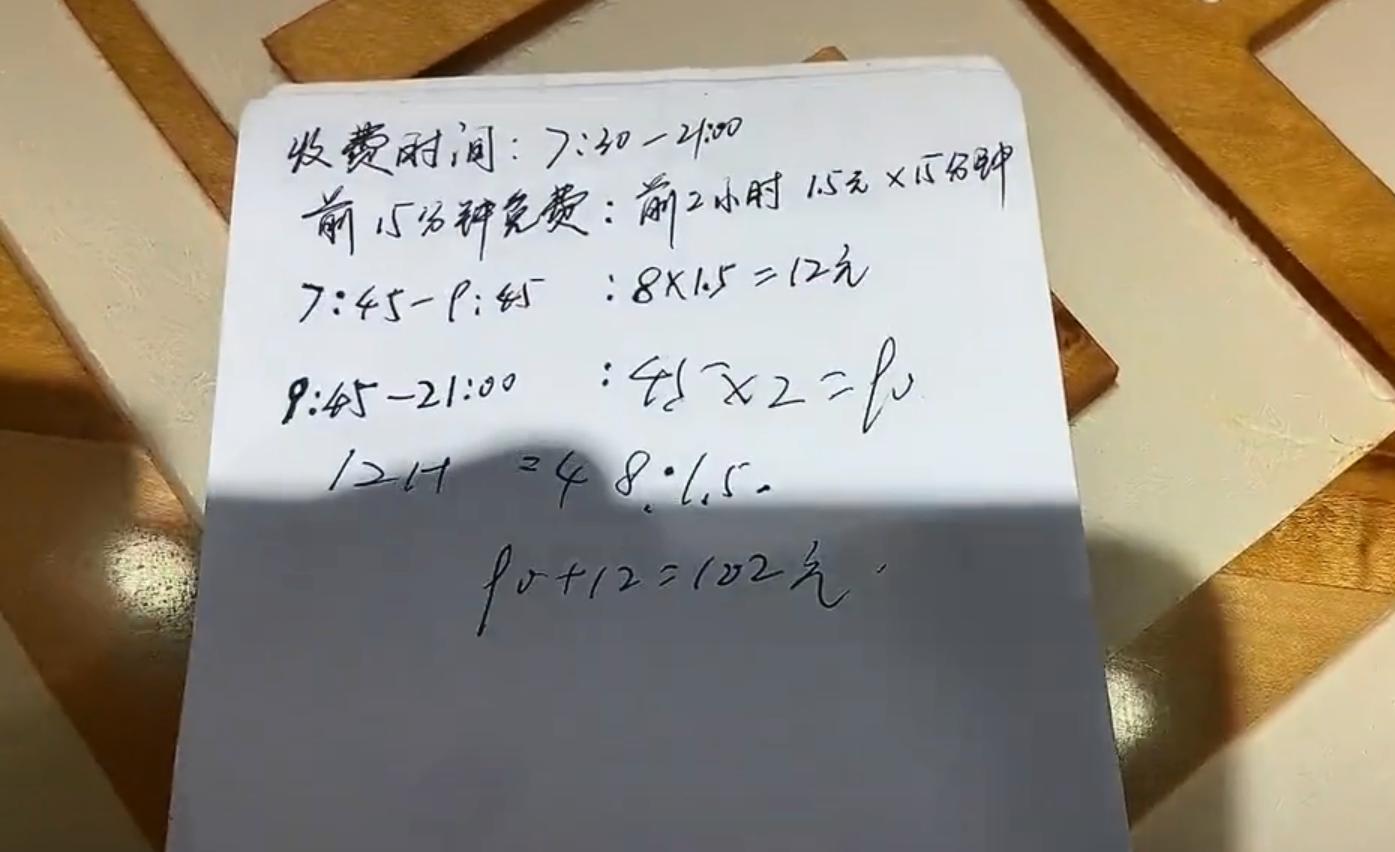 收费时间: 7:30-21:00
前15分钟免费: 前2小时 1.5元×15分钟
7:45-9:45 :8×1.5=12元
9:45-21:00 :45×2=90
12H =48:1.5.
90+12=102元.